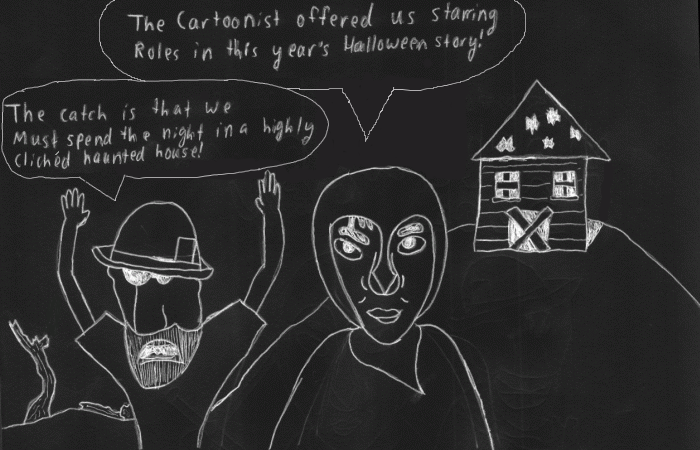 The Cartoonist offered us starring
Roles in this year's Halloween story!
The catch is that we
Must spend the night in a highly
clichéd haunted house!